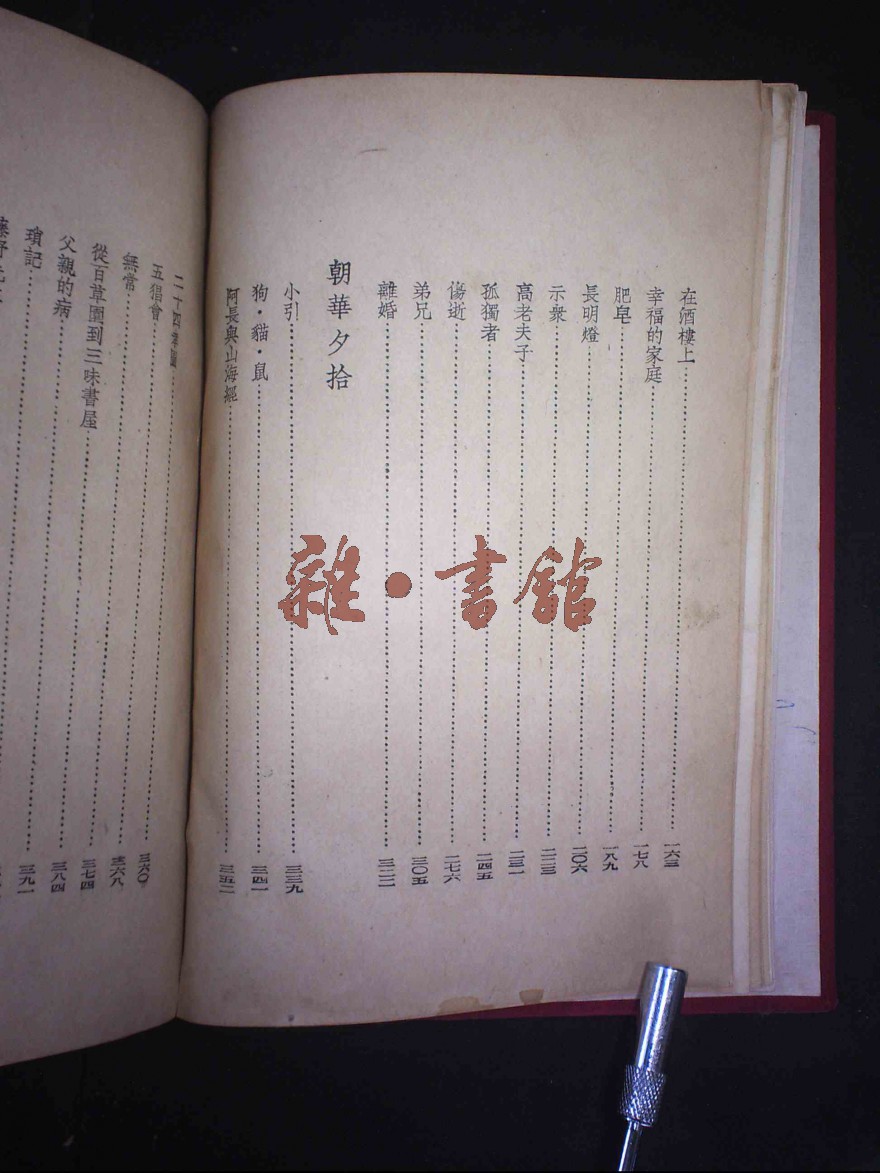 在酒樓上……一六三
幸福的家庭……一七八
肥皂……一八九
長明燈……二〇六
示衆……二二三
高老夫子……二三一
孤獨者……二四五
傷逝……二七六
弟兄……三〇五
離婚……三二二
朝華夕拾
小引……三三九
狗·貓·鼠……三四一
阿長與山海經……三五二
二十四孝圖……三六〇
五猖會……三六八
無常……三七四
從百草園到三味書屋……三八四
父親的病……三九一
瑣記
雜·書館